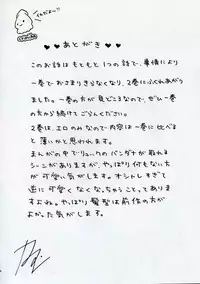 でんだよー!!
♥♥あとがき♥♥
このお話はもともと1つの話で、事情により
一巻でおさまりきらなくなり、2巻にふくれあがり
ました。一巻の方が見どころなので、ぜひ一巻
の方から続けてごらんください。
2巻は、エロのみなので内容は一巻に比べる
と薄いかと思われます。
まんがの中でリュカのバンダナが取れる
シーンがありますが、やっぱり何もない方
が可愛い気がします。オシャレすぎて
逆に可愛くなくなっちゃうことってあります
よね。やっぱり髪型は前作の方が
よかった気がします。